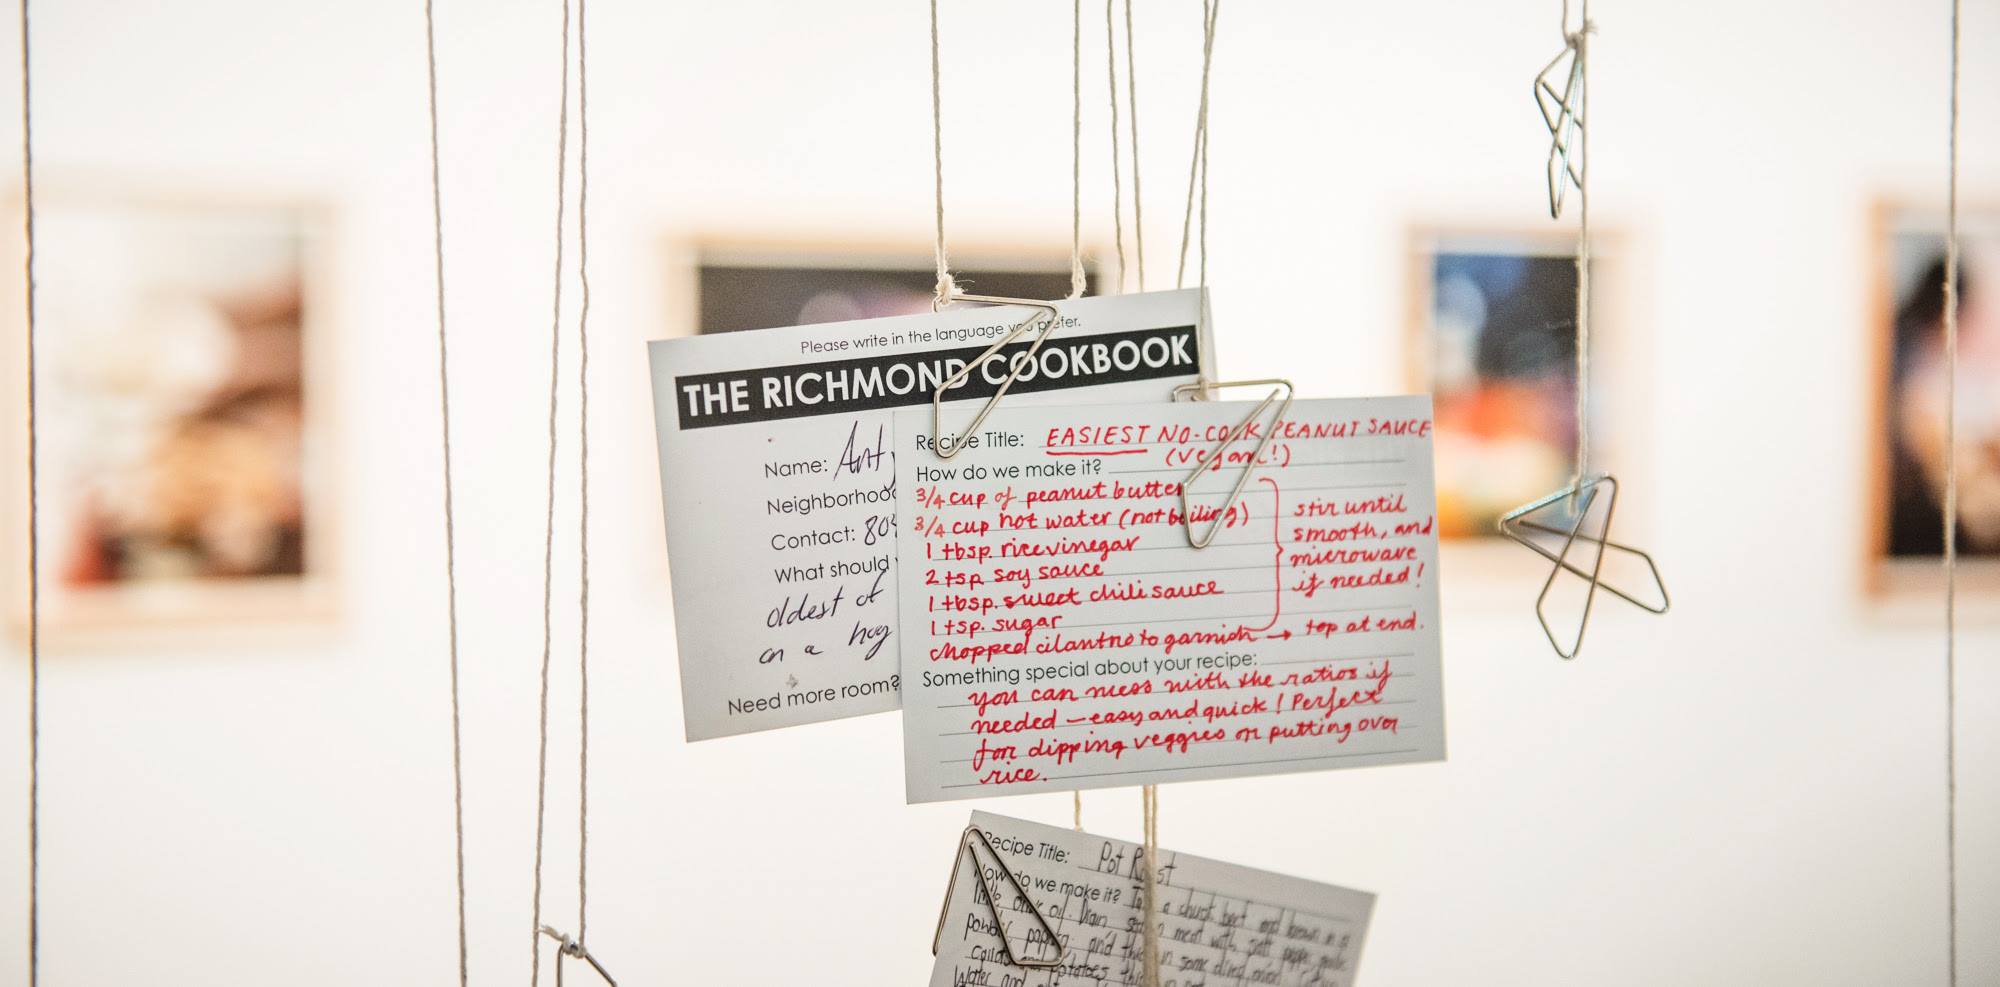 Please write in the language you prefer.
THE RICHMOND COOKBOOK
Name: Ant
Neighborhood
Contact: 80
What should
oldest of
on a hog
Need more room?
Recipe Title: EASIEST NO-COOK PEANUT SAUCE
(vegan!)
How do we make it?
3/4 cup of peanut butter
3/4 cup hot water (not boiling)
1 tbsp. rice vinegar
2 tsp soy sauce
1 tbsp. sweet chili sauce
1 tsp. sugar
stir until
smooth, and
microwave
if needed!
chopped cilantro to garnish → top at end.
Something special about your recipe:
you can mess with the ratios if
needed – easy and quick! Perfect
for dipping veggies or putting over
rice.
Recipe Title: Pot Roast
How do we make it? a chust beef and brown in a
olive oil. meat with salt pepper
and in some
potatoes,
Water and